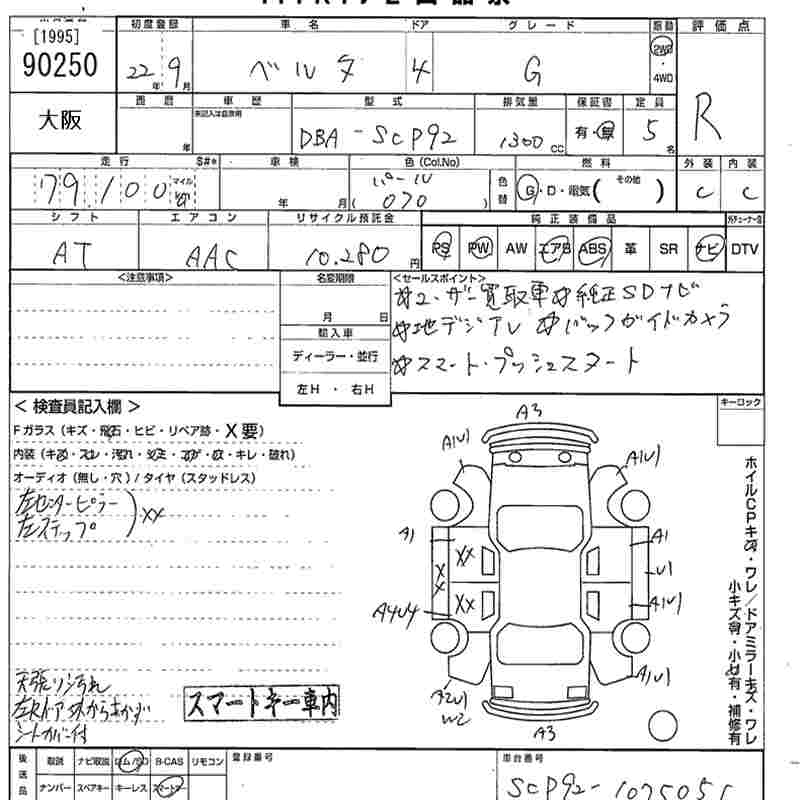 [1995]
90250
大阪
初度登録 車名 ドア グレード 駆動 評価点
22年 9月 ベルタ 4 G 2WD・4WD R
西暦 車歴 型式 排気量 保証書 定員
年 未記入は自家用 DBA-SCP92 1300cc 有・無 5名
走行 $#* 車検 色(Col.No) 燃料 外装 内装
79,100 マイル 年 月 パール (070) 色替 G・D・電気( その他 ) C C
シフト エアコン リサイクル預託金 純正装備品
AT AAC 10,280円 PS PW AW エアB ABS 革 SR ナビ DTV
<注意事項> 名変期限 <セールスポイント>
月 日
輸入車
ディーラー・並行
左H・右H
☆ユーザー買取車☆純正SDナビ
☆地デジTV ☆バックガイドカメラ
☆スマート・プッシュスタート
キーロック
< 検査員記入欄 >
Fガラス(キズ・飛石・ヒビ・リペア跡・X要)
内装(キズ・スレ・汚れ・シミ・コゲ・穴・キレ・破れ)
オーディオ(無し・穴)/タイヤ(スタッドレス)
左センターピラー
左ステップ
XX
A3
A1U1 A1U1
A1 XX A1
XX U1
A4U4 XX A1U1
A2U1 W2 A1U1
A3
ホイルCPキズ・ワレ/ドアミラーキズ・ワレ
小キズ有・小凹有・補修有
天張りシ汚れ
左Rドア外からあかず
シートカバー付
スマートキー車内
後送品 取説 ナビ取説 ロム/SD B-CAS リモコン 登録番号 車台番号
ナンバー スペアキー キーレス スマートキー SCP92-1075051